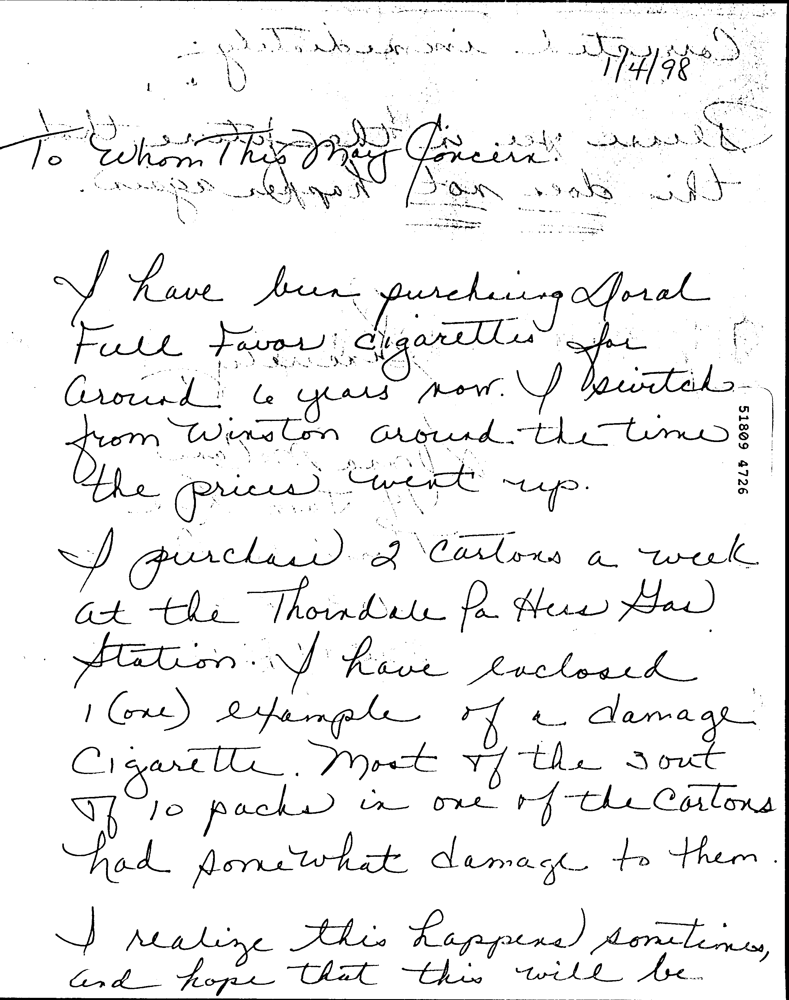 1/4/98
To Whom This May Concern:
I have been purchasing Doral
Full Favor cigarettes for
around 6 years now. I switch
from Winston around the time
the prices went up.
I purchase 2 cartons a week
at the Thorndale Pa Hess Gas
Station. I have enclosed
1 (one) example of a damage
Cigarette. Most of the 3 out
of 10 packs in one of the Cartons
had somewhat damage to them.
I realize this happens sometimes,
and hope that this will be
51809 4726
Corrected immediately.
Please see in the future that
this does not happen again.